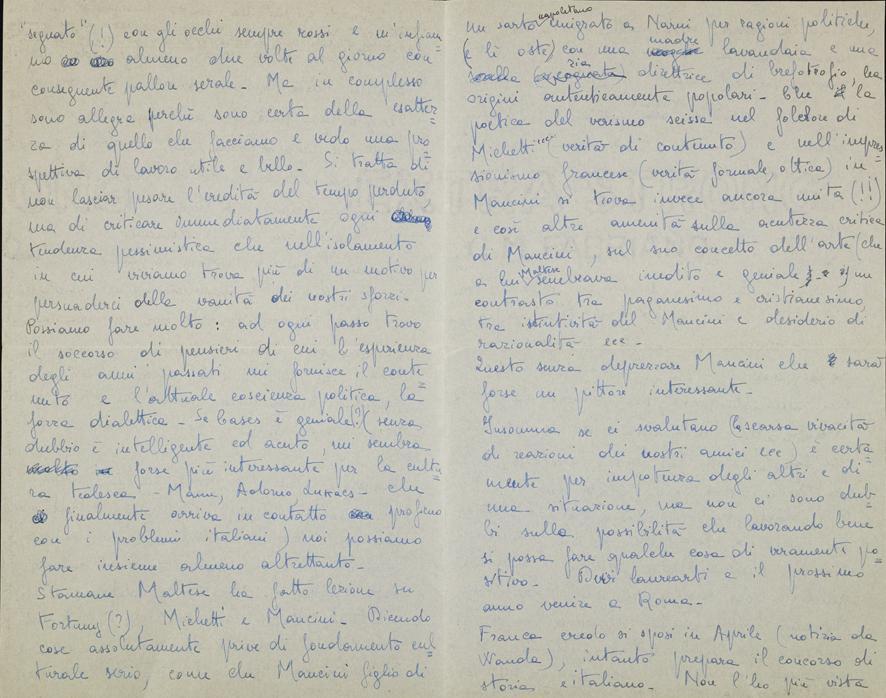 "segnato" (!) con gli occhi sempre rossi e m'infiam
mo almeno due volte al giorno con
conseguente pallore serale - Ma in complesso
sono allegra perché sono certa della esattez=
za di quello che facciamo e vedo una pro
spettiva di lavoro utile e bello - Si tratta di
non lasciar pesare l'eredità del tempo perduto,
ma di criticare immediatamente ogni
tendenza pessimistica che nell'isolamento
in cui viviamo trova più di un motivo per
persuaderci della vanità dei nostri sforzi -
Possiamo fare molto : ad ogni passo trovo
il soccorso di pensieri di cui l'esperienza
degli anni passati mi fornisce il conte=
nuto e l'attuale coscienza politica, la
forza dialettica - Se Cases è geniale (?) (senza
dubbio è intelligente ed acuto, mi sembra
forse più interessante per la cultu=
ra tedesca - Mann, Adorno Lukacs - che
finalmente arriva in contatto proficuo
con i problemi italiani) noi possiamo
fare insieme almeno altrettanto -
Stamane Maltese ha fatto lezione su
Fortuny (?), Michetti e Mancini - Dicendo
cose assolutamente prive di fondamento cul=
turale serio, come che Mancini figlio di
un sarto napoletano emigrato a Narni per ragioni politiche,
(e lì oste) con una madre lavandaia e una
zia direttrice di brefotrofio, ha
origini autenticamente popolari - Che la
poetica del verismo scissa nel folclore di
Michetti ecc (verità di contenuto) e nell'impres
sionismo francese (verità formale, ottica) in
Mancini si trova invece ancora unita (!!)
e così altre amenità sulla acutezza critica
di Mancini, sul suo concetto dell'arte (che
a lui Maltese sembrava inedito e geniale) un
contrasto tra paganesimo e cristianesimo,
tra istintività del Mancini e desiderio di
razionalità ecc -
Questo senza deprezzare Mancini che sarà
forse un pittore interessante -
Insomma se ci svalutano (la scarsa vivacità
di reazioni dei nostri amici ecc) è certa
mente per impotenza degli altri e di
una situazione, ma non ci sono dub=
bi sulla possibilità che lavorando bene
si possa fare qualche cosa di veramente po=
sitivo - Devi laurearti e il prossimo
anno venire a Roma -
Franca credo si sposi in Aprile (notizia da
Wanda), intanto prepara il concorso di
storia e italiano - Non l'ho più vista